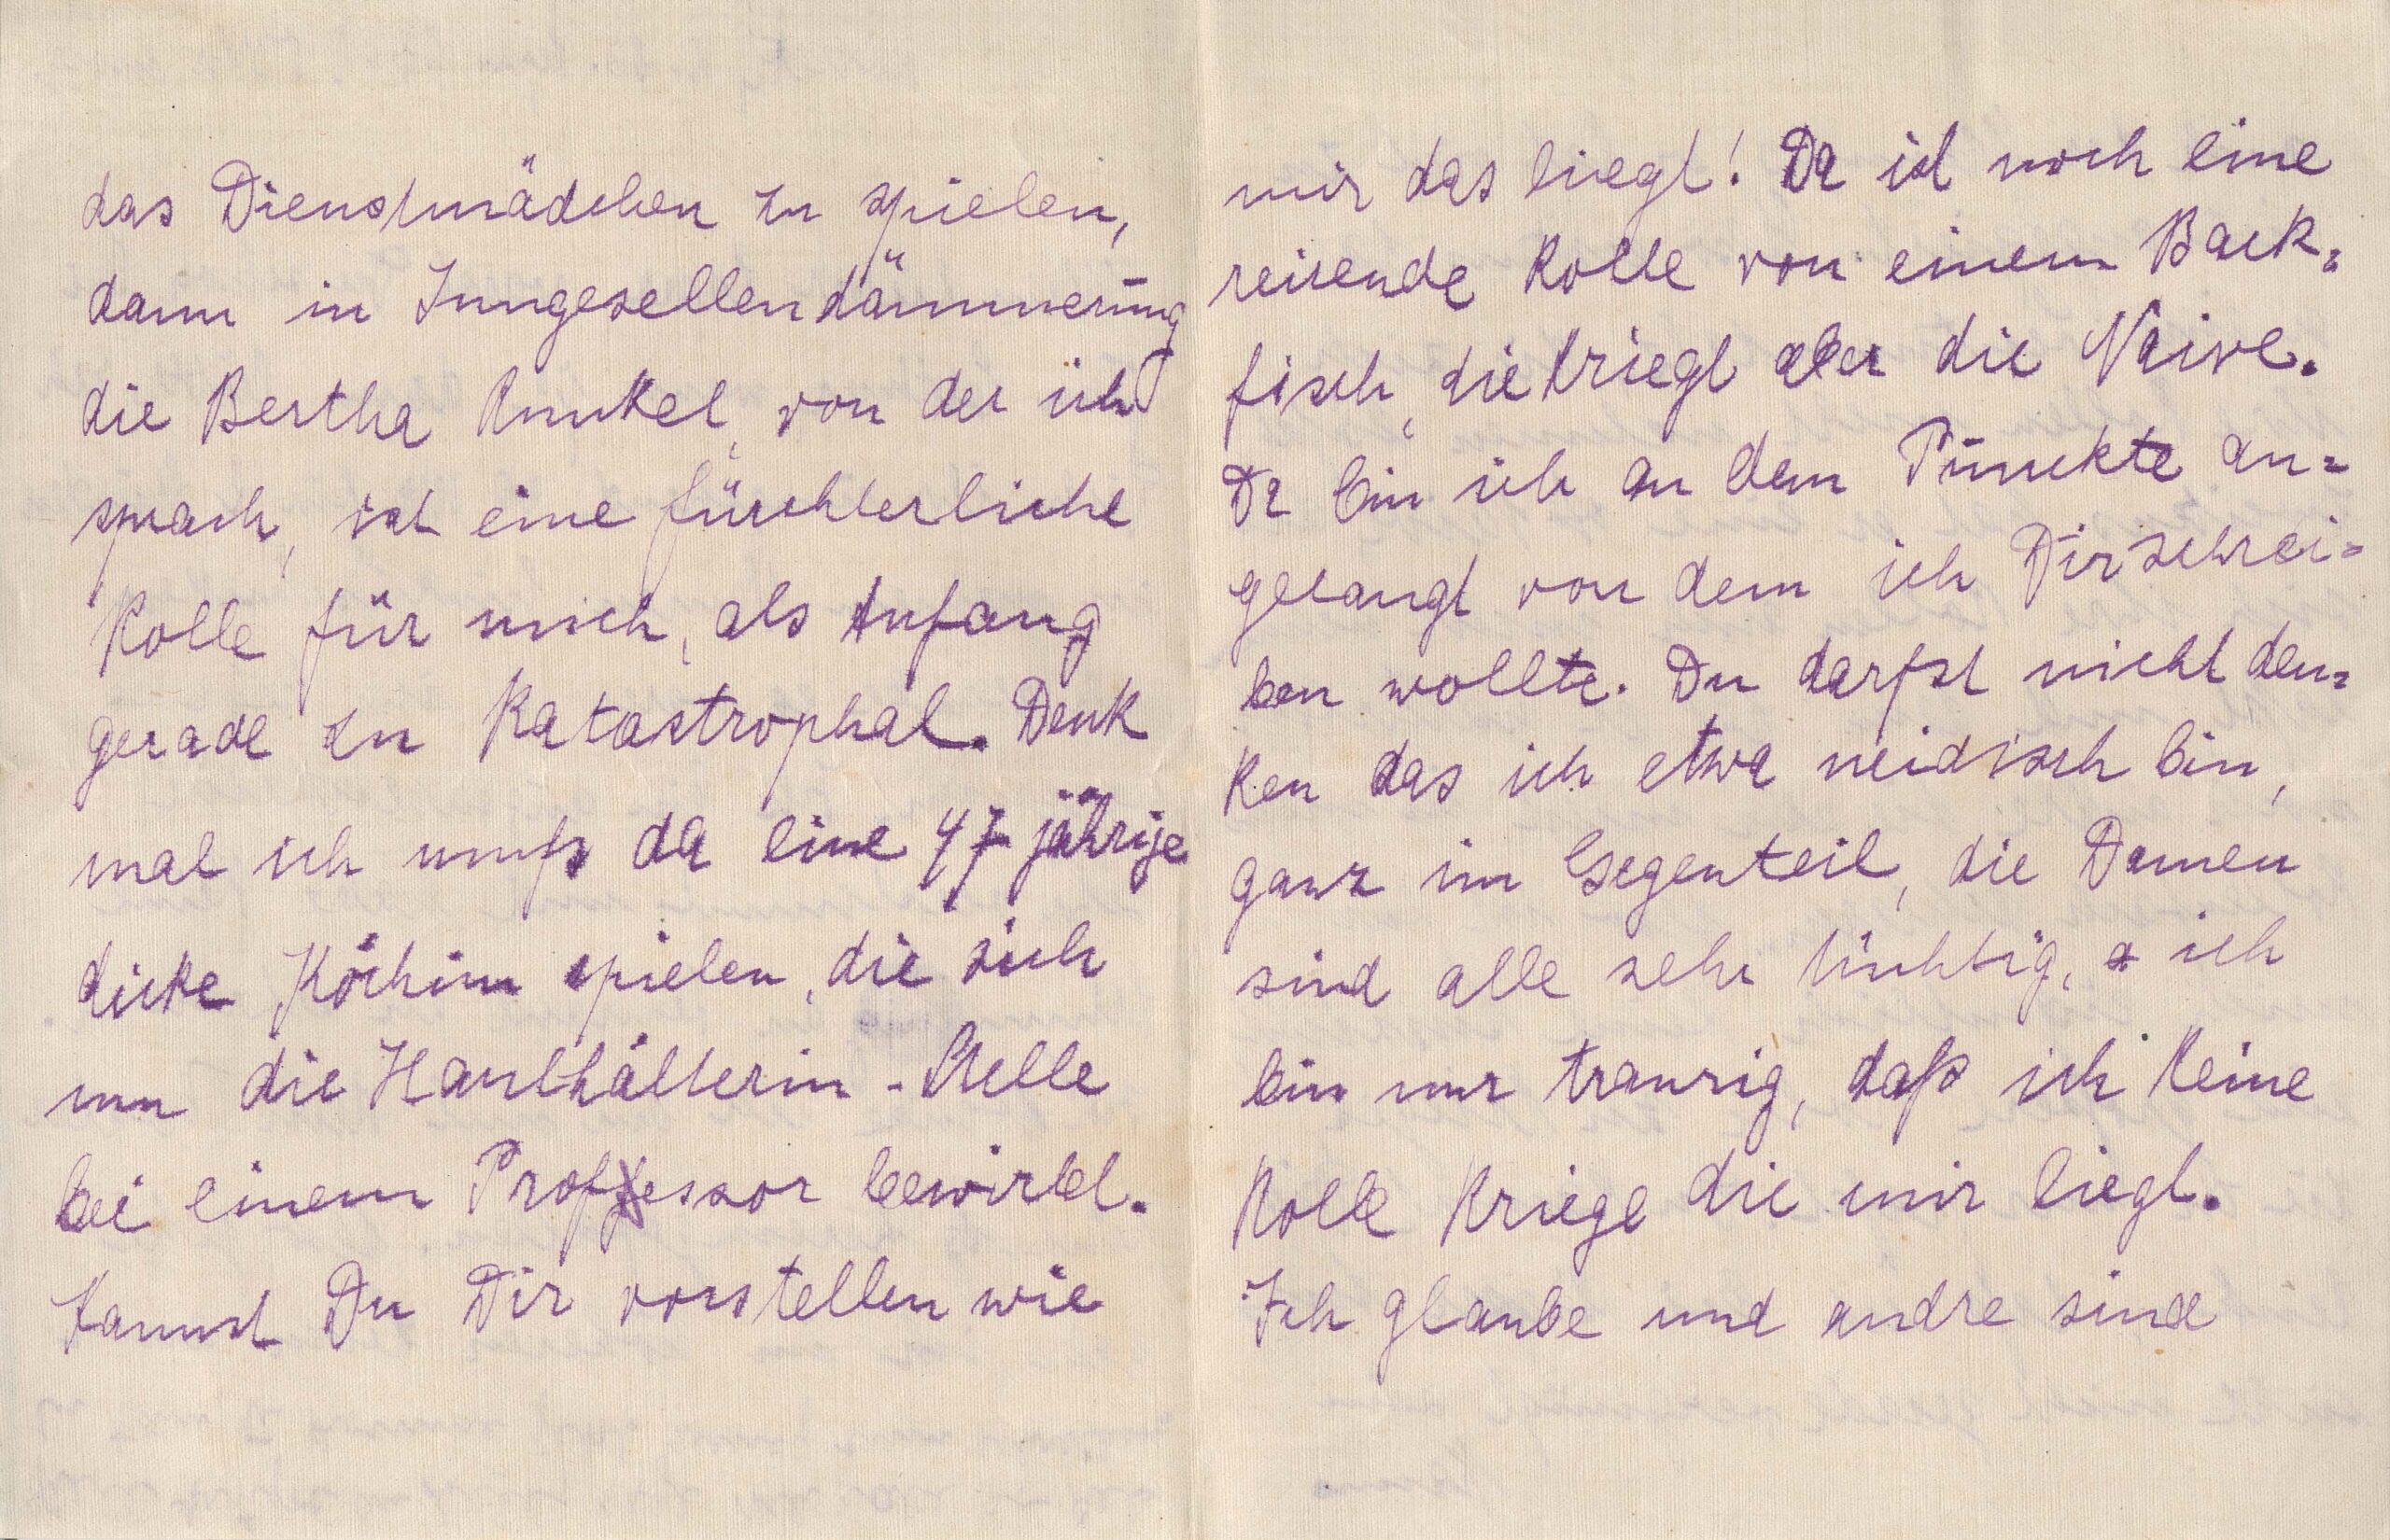 das Dienstmädchen zu spielen,
dann in Jungesellendämmerung
die Bertha Kunkel, von der ich
sprach, ist eine fürchterliche
Rolle für mich, als Anfang
gerade zu Katastrophal. Denk
mal ich muß da eine 47 jährige
dicke Köchinn spielen, die sich
um die Haushälterin-Stelle
bei einem Professor bewirbt.
Kannst Du Dir vorstellen wie
mir das liegt! Da ist noch eine
reisende Rolle von einem Back=
fisch, die kriegt aber die Naive.
Da bin ich an dem Punkte an=
gelangt von dem ich Dir schrei=
ben wollte. Du darfst nicht den=
ken das ich etwa neidisch bin,
ganz im Gegenteil, die Damen
sind alle sehr tüchtig, ich
bin nur traurig, daß ich keine
Rolle kriege die mir liegt.
Ich glaube und andre sind